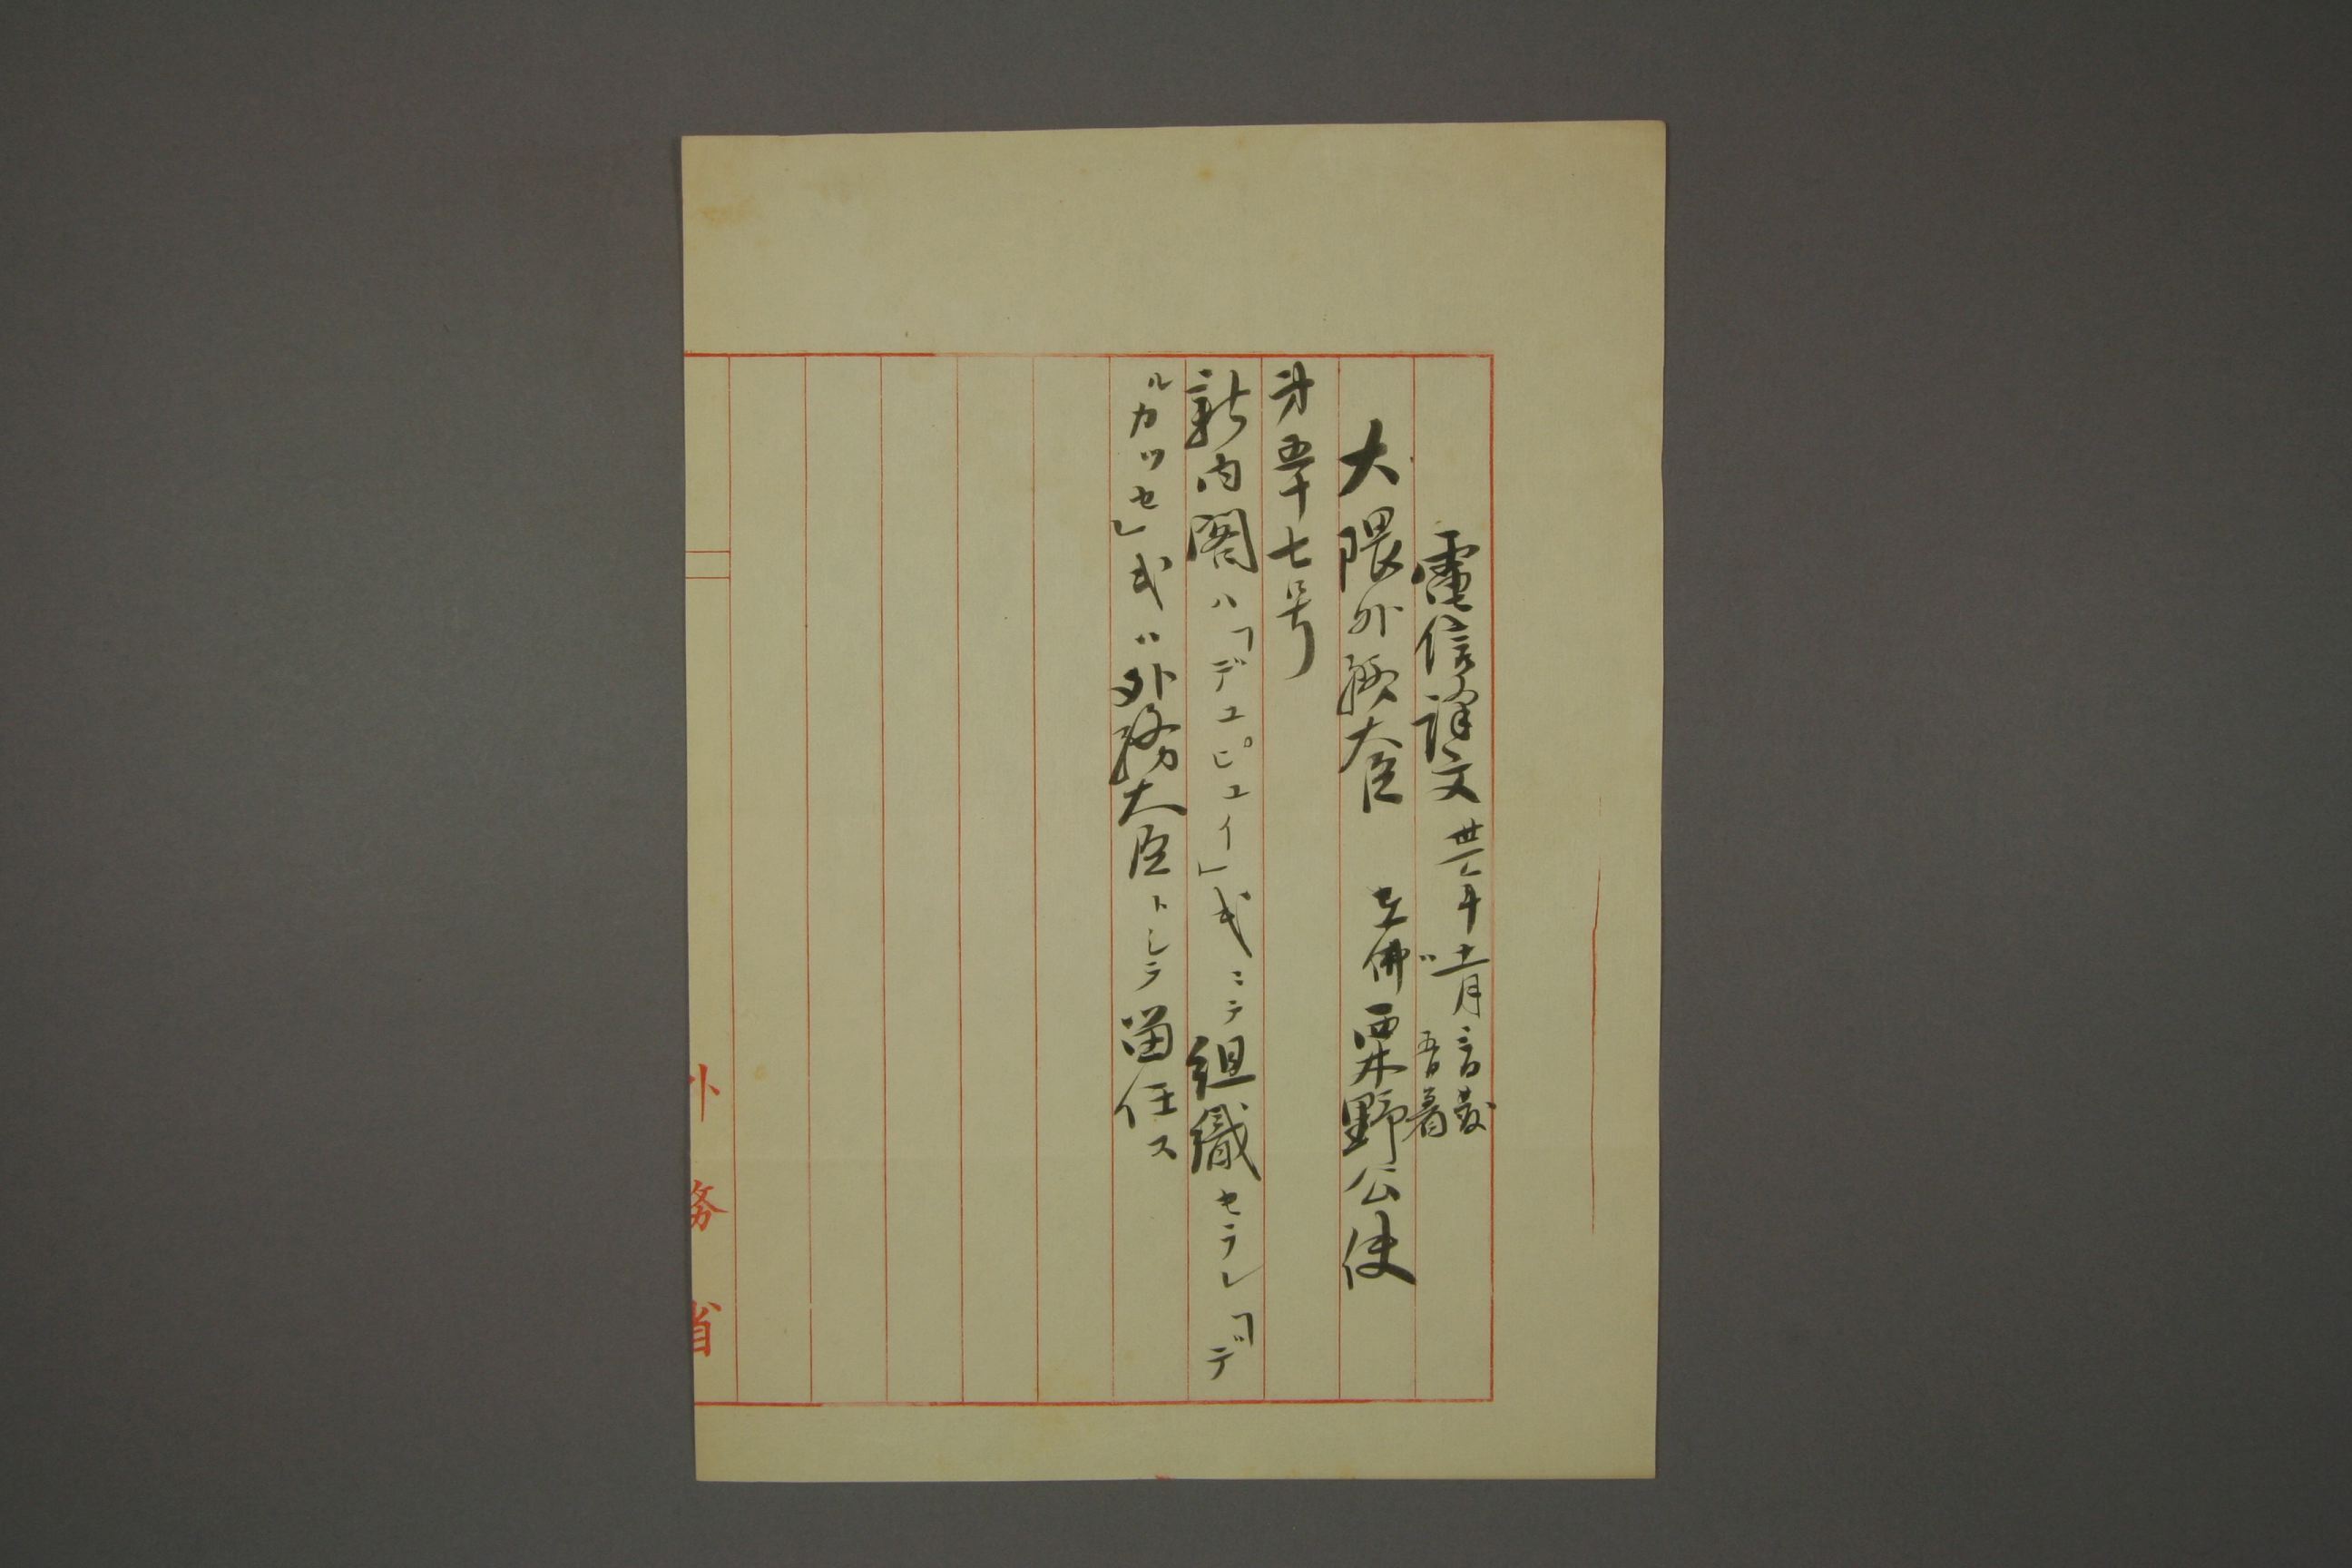 電信譯文 卅一年十一月三日発
五日着
大隈外務大臣 在佛 栗野公使
第五十七号
新内閣ハ「デユピユイ」氏ニテ組織セラレ「デ
ルカツセ」氏ハ外務大臣トシテ留任ス
外務省